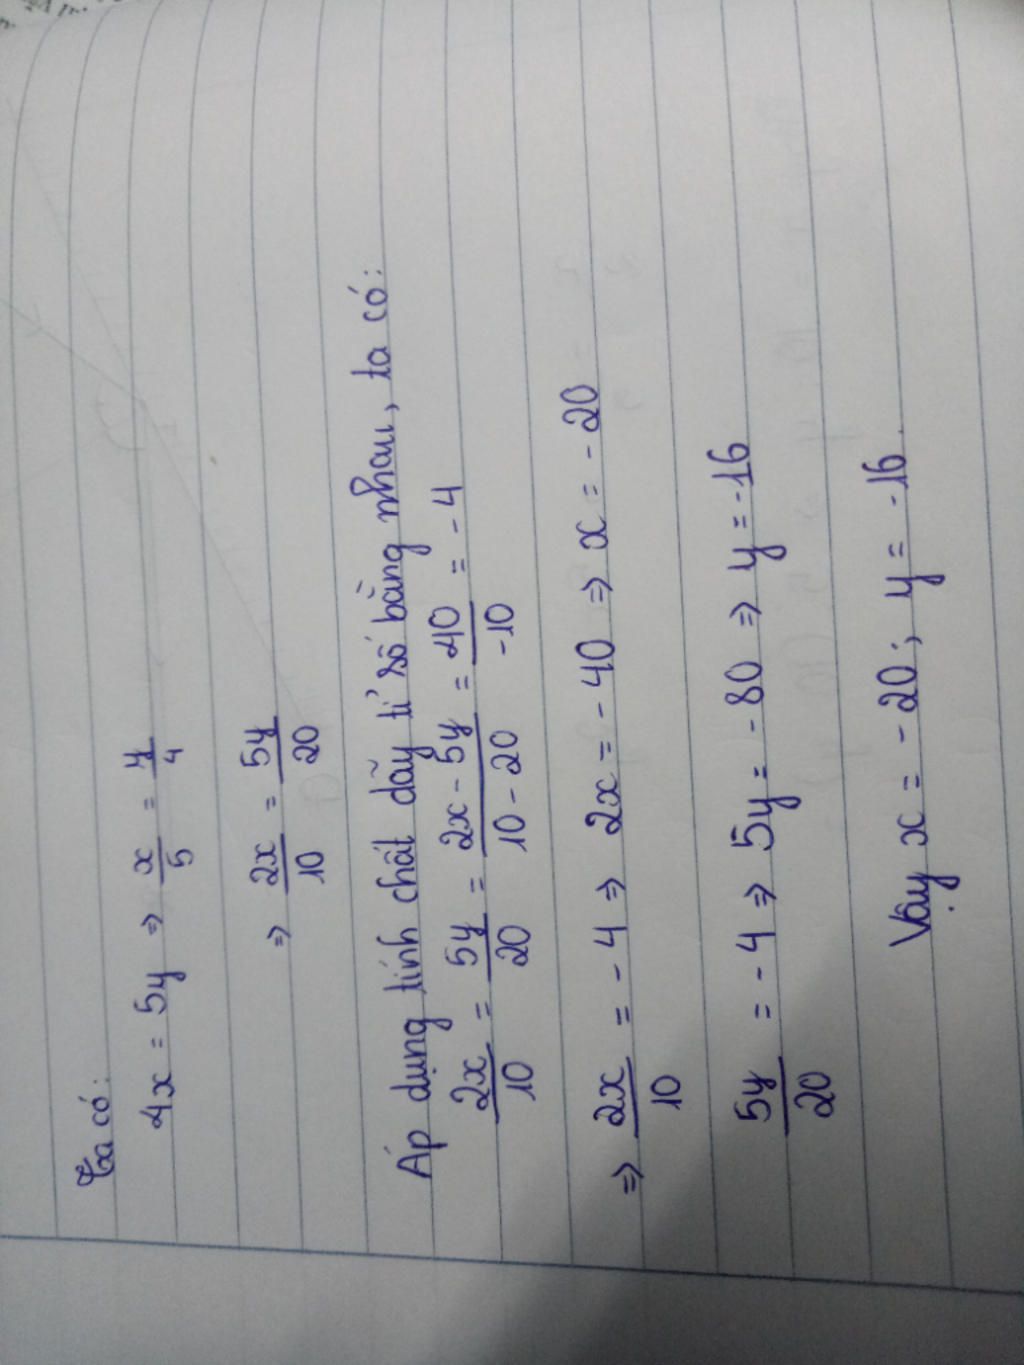 Ta có:
4x = 5y => x/5 = y/4
=> 2x/10 = 5y/20
Áp dụng tính chất dãy tỉ số bằng nhau, ta có:
2x/10 = 5y/20 = 2x - 5y/10 - 20 = 40/-10 = - 4
=> 2x/10 = - 4 => 2x = - 40 => x = - 20
5y/20 = - 4 => 5y = - 80 => y = -16
Vậy x = - 20; y = -16.